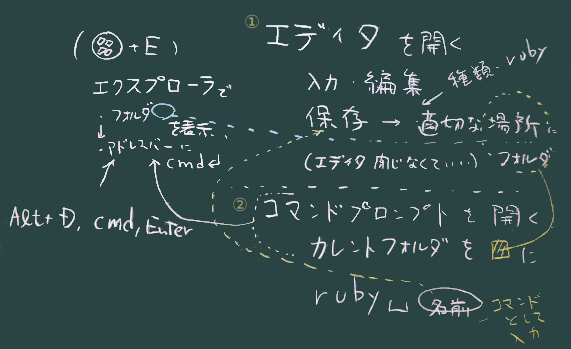 ① エディタを開く
入力・編集
種類・ruby
保存 → 適切な場所に
(エディタ閉じなくていい) フォルダ
② コマンドプロンプトを開く
カレントフォルダを に
ruby␣名前
コマンド
として
入力
( +E)
エクスプローラで
フォルダ
を表示
アドレスバーに
cmd↵
Alt+D, cmd, Enter